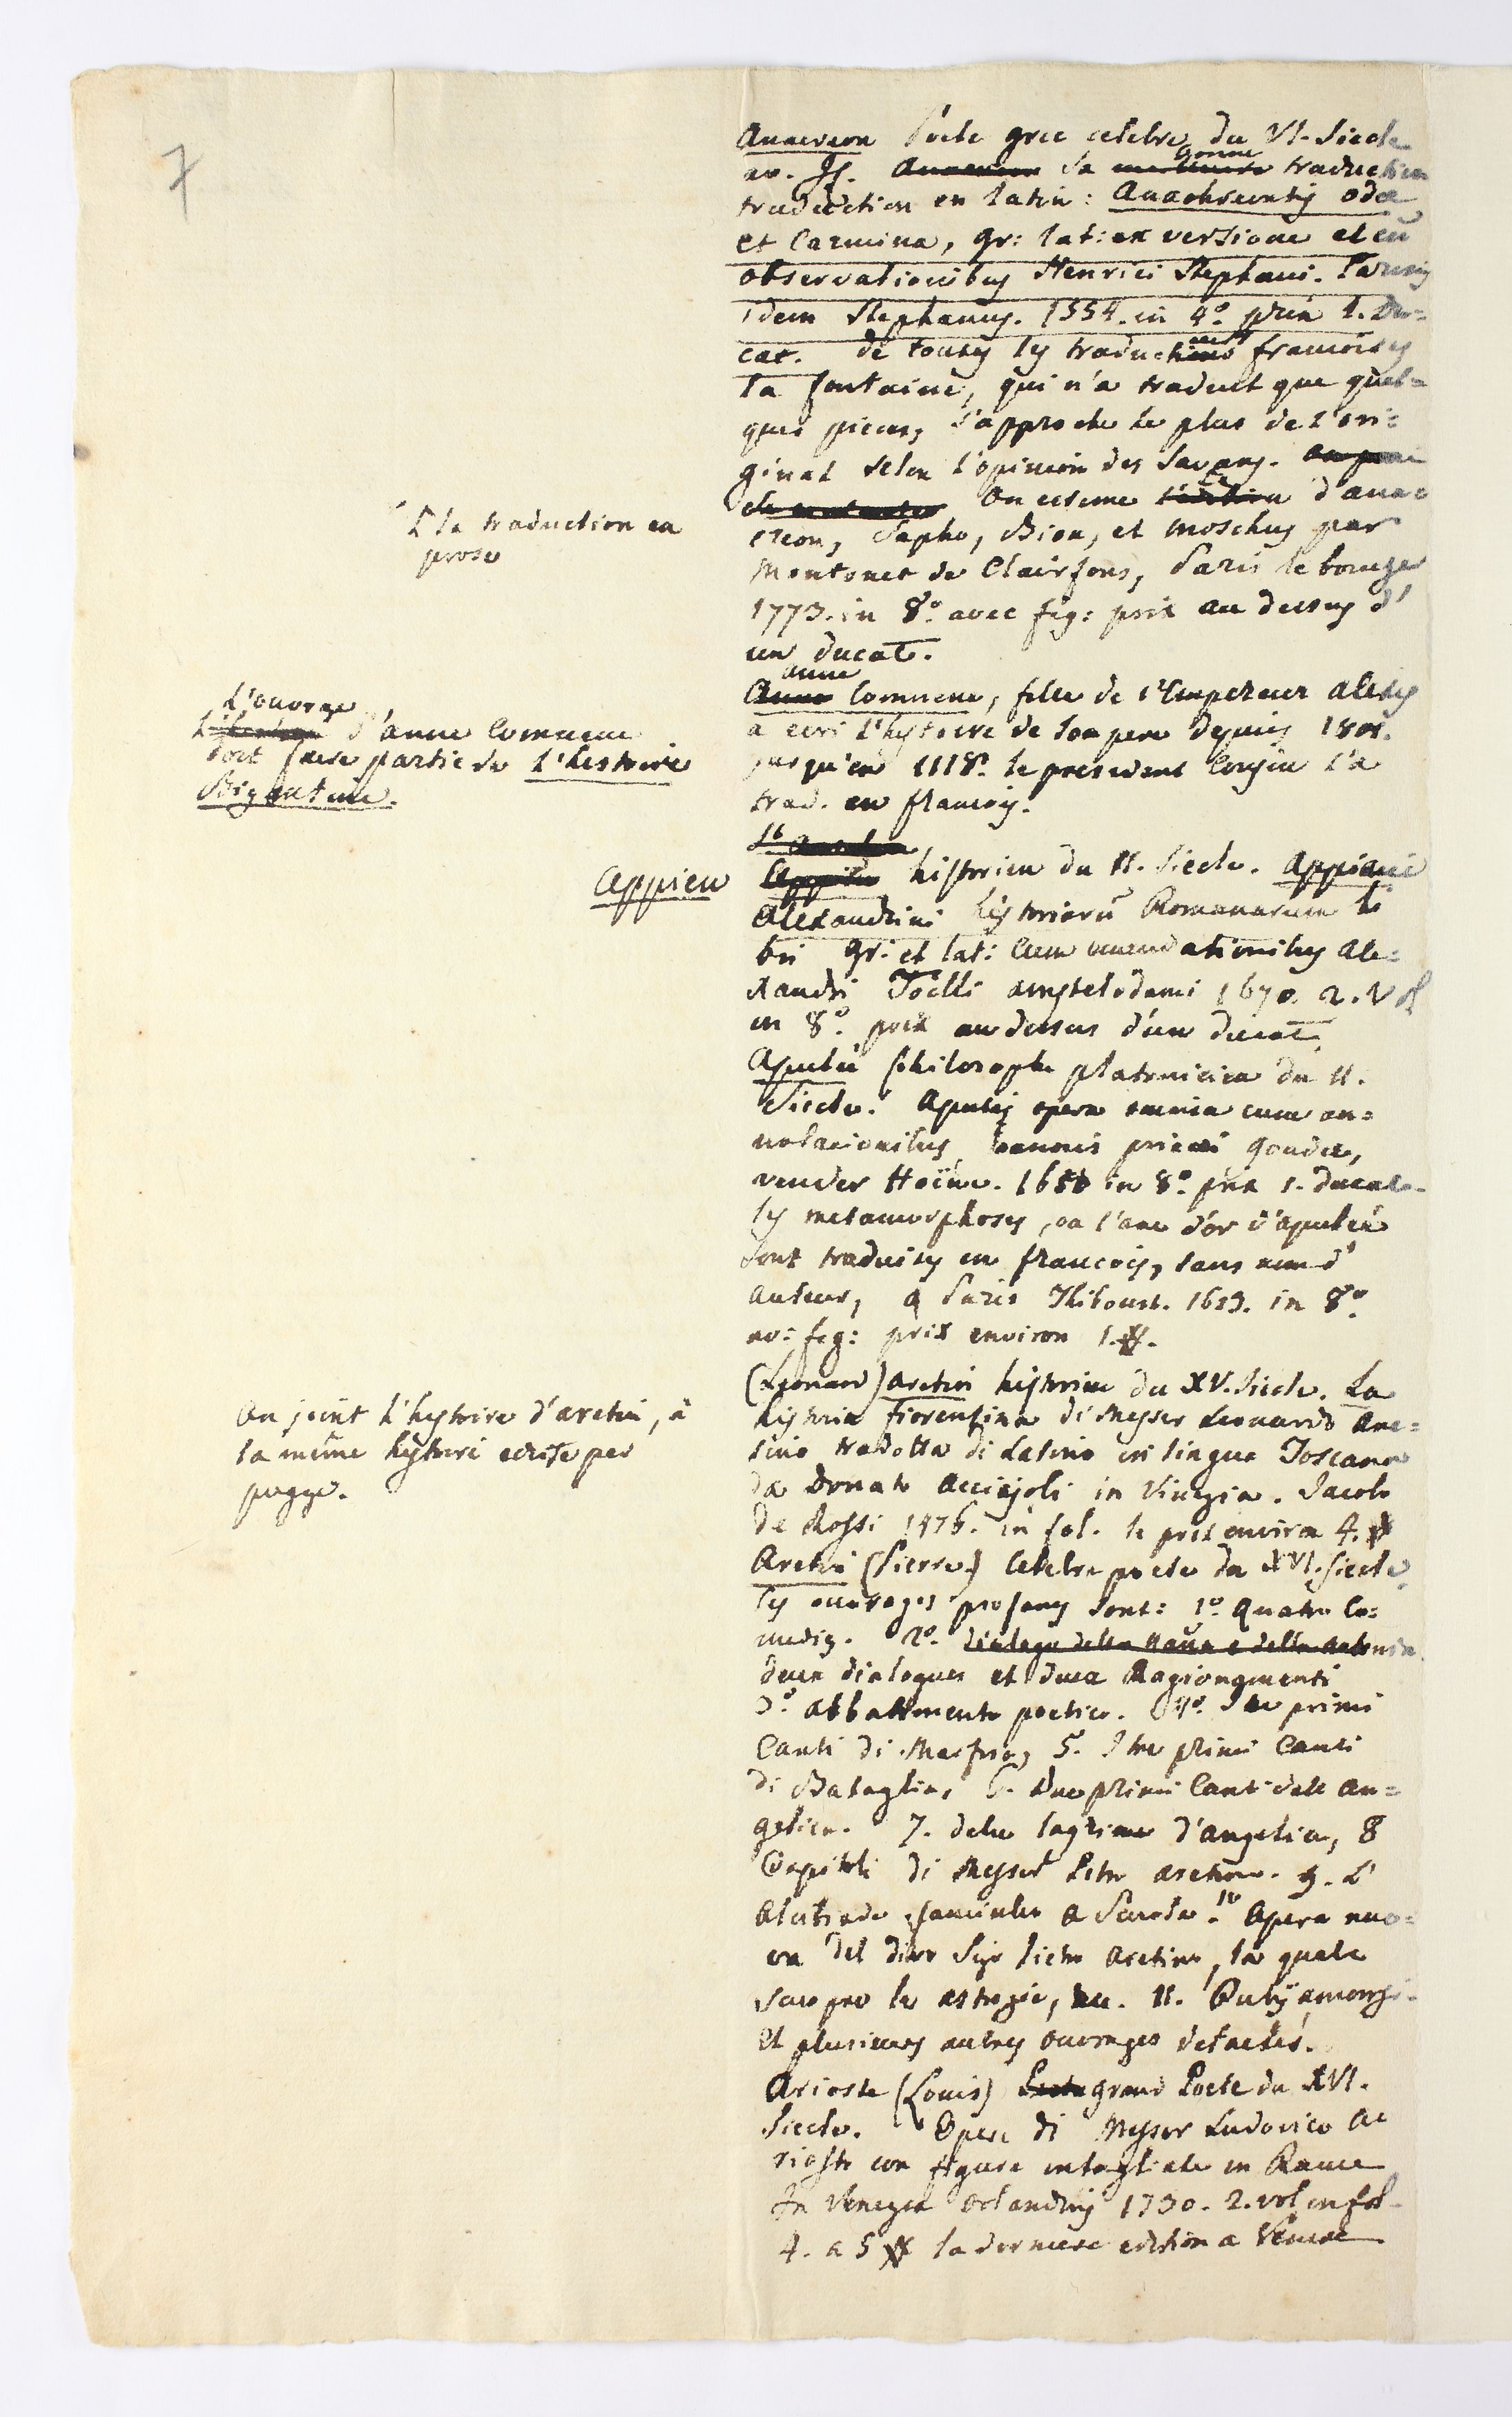 7
Anacreon Poete grec celebre du VI. Siecle
av. JC. Anacreon Sa bonne traduction
traduction en latin: Anachreontis odæ
et Carmina, gr: lat: ex versione et cũ
observationibus Henrici Stephani. Parisiis
idem Stephanus. 1554. in 4º. prix 1. Du=
cat. de toutes les traductions francoises
la fontaine, qui n'a traduit que quel=
ques pieces, s'approche le plus de l'ori=
ginal selon l'opinion des Savans.
On estime d'anac
L la traduction en
prose
creon, Sapho, Bion, et Moschus par
Moutonet de Clairfons, Paris le boucher
1773. in 8º. avec fig: prix au dessus d'
un ducat.
anne
Anne Comnene, fille de l'Empereur Alexis
a ecri l'hystoire de son pere depuis 1801.
jusqu'en 1118. le president Cousin l'a
trad. en francois.
L'ouvrage
d'anne Comnene
doit faire partie de l'histoire
Bizantine.
Appien
historien du II. Siecle. Appiani
Alexandrini hystoriarũ Romanarum li
bri gr: et lat: Cum emendationibus Ale=
xandri Tollii amstelodami 1670. 2. Vol
in 8º. prix au dessus d'un ducat.
Apulée philosophe platonicien du II.
Siecle. Apuleij opera omnia cum an=
notationibus Joannis pricæi Goudæ,
vender Hoïwe. 1650 in 8º. prix 1. ducat.
les metamorphoses, ou l'ane d'or d'apulée
Sont traduites en francois, sans nom d'
auteur, a Paris Thiboust. 1623. in 8º.
av: fig: prix environ 1. #.
(Leonard) aretin hystorien du XV. Siecle. La
historia fiorentina di Messer Leonardo Are=
tino tradotta di Latino in lingua Toscana
da Donato Acciajoli in Vinegia. Jacob
de Rossi 1476. in fol. le prix environ 4. #
On joint l'hystoire d'aretin, à
la même hystoire ecrite par
pogge.
Aretin (Pierre) Celebre poete du XVI. Siecle
les ouvrages profanes sont: 1º. Quatre Co=
medies. 2º. dialogo della Nanna e della Antonia
deux dialogues et deux Ragionamenti
3º. abbattimento poetico. 4º. Tre primi
Canti di Marfisa, 5. Tre primi Canti
di Bataglia, 6. Due primi Canti dell An=
gelica. 7. delle lagrime d'angelica, 8
Capitoli di Messer Petro aretino. 9. L'
10
Opera nuo=
va del divo Sigr Pietro Aretino, la quale
scuopre le astuzie, &c. 11. Dubij amorosi.
et plusieurs autres ouvrages detachés.
Arioste (Louis) Poete grand Poete du XVI.
Siecle. Opere di Messer Ludovico Ar
riosto con figure intagliate in Rame
In Venezia Orlandini 1730. 2. vol in fol.
4. a 5 # la derniere edition a Venise